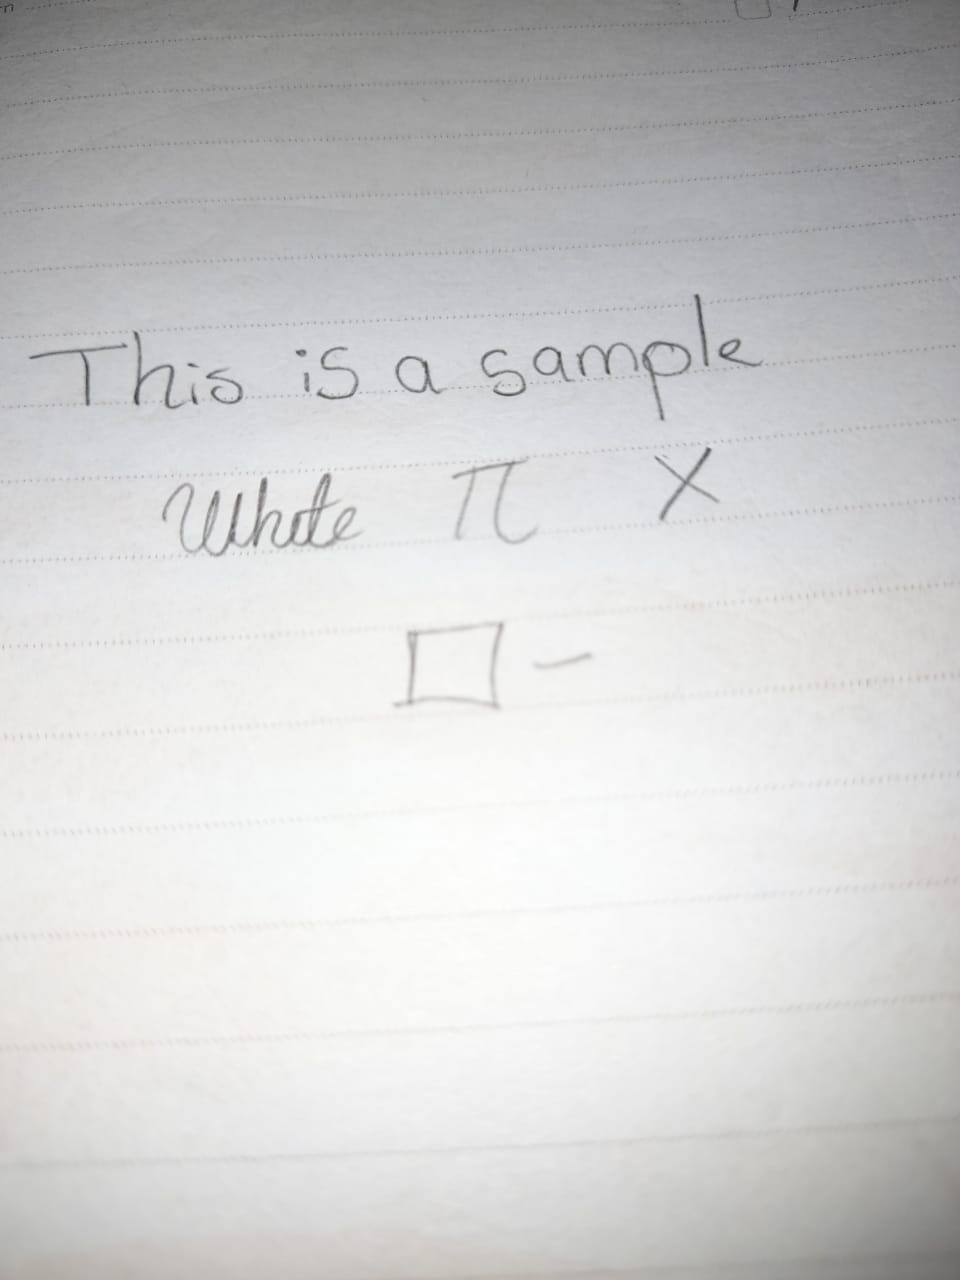 This is a sample
Whote π X
□ –